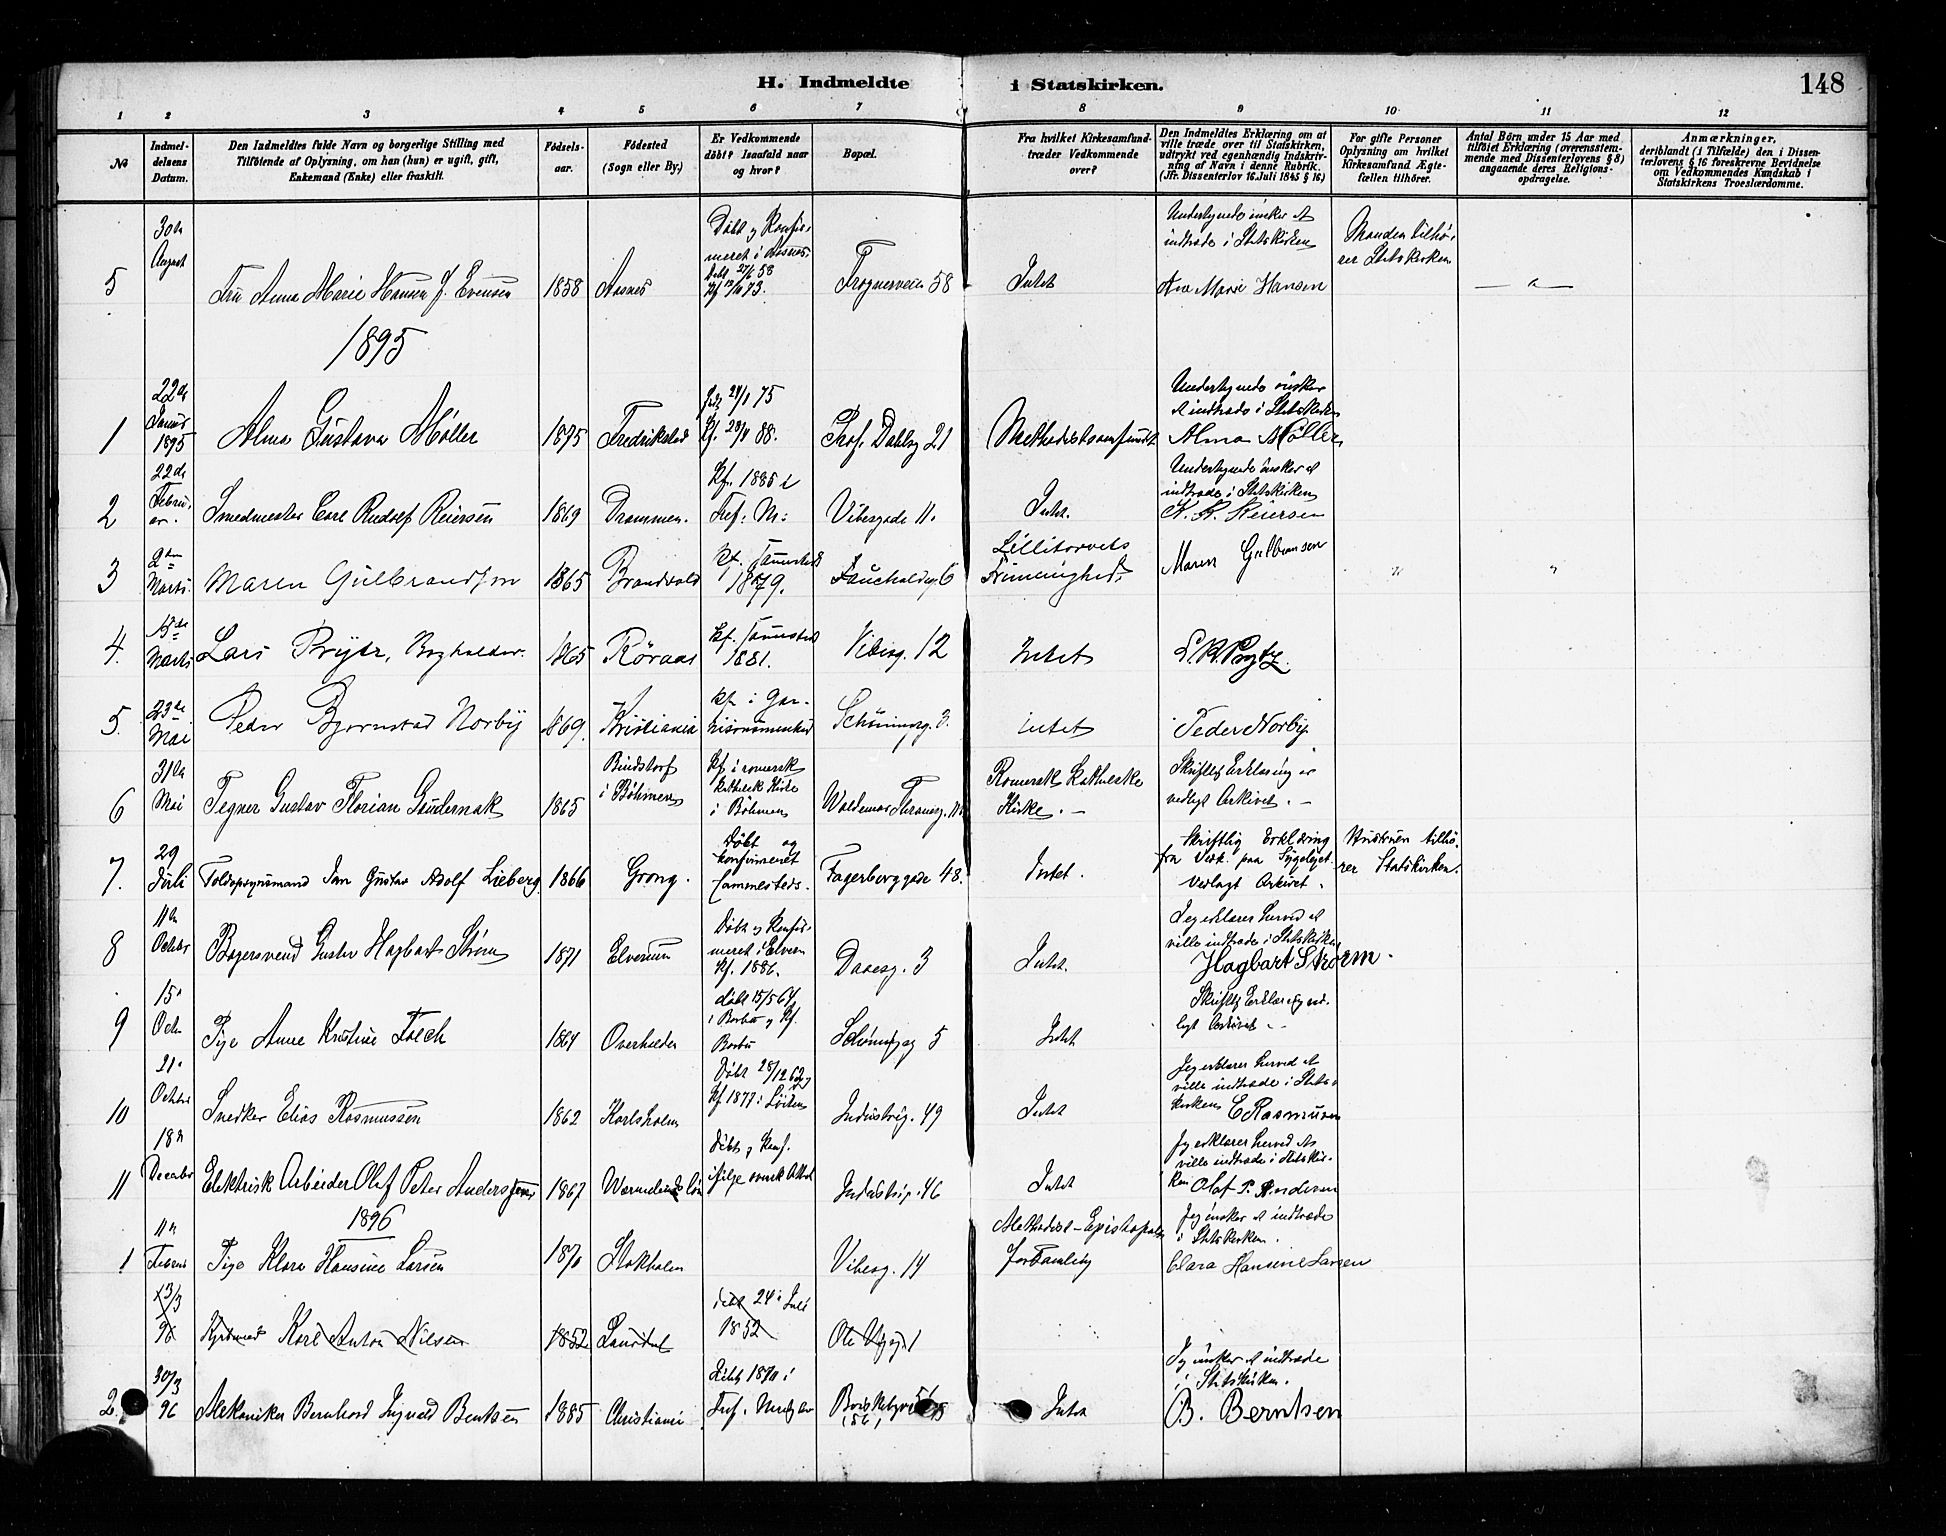 H. Indmeldte i Statskirken.
148
1 2 3 4 5 6 7 8 9 10 11 12
№
Indmel-
delsens
Datum.
Den Indmeldtes fulde Navn og borgerlige Stilling med
Tilføiende af Oplysning, om han (hun) er ugift, gift,
Enkemand (Enke) eller fraskilt.
Fødsels-
aar.
Fødested
(Sogn eller By.)
Er Vedkommende
døbt? Isaafald naar
og hvor?
Bopæl.
Fra hvilket Kirkesamfund
træder Vedkommende
over?
Den Indmeldtes Erklæring om at
ville træde over til Statskirken,
udtrykt ved egenhændig Indskriv-
ning af Navn i denne Rubrik.
(Jfr. Dissenterlov 16. Juli 1845 § 16)
For gifte Personer
Oplysning om hvilket
Kirkesamfund Ægte-
fællen tilhører.
Antal Børn under 15 Aar med
tilføiet Erklæring (overensstem-
mende med Dissenterlovens § 8)
angaaende deres Religions-
opdragelse.
Anmærkninger,
deriblandt (i Tilfælde) den i Dissen-
terlovens § 16 foreskrevne Bevidnelse
om Vedkommendes Kundskab i
Statskirkens Troeslærdomme.
5
30te
August
Fru Anna Marie Hansen f. Evensen
1858
Aasnes
Døbt og Konfir-
meret i Aasnes.
Frognerveien 58
Intet
Undertegnede ønsker at
indtræde i Statskirken
Ane Marie Hansen
Manden tilhø-
rer Statskirken
1895
1
22de
Januar
1895
Alma Gustava Møller
1875
Fredrikstad
Prof. Dahlsg 21
Methodistsamfundet
Undertegnede ønsker
at indtræde i Statskirken
Alma Møller
2
22de
Februar.
Smedmester Carl Rudolf Reiersen
1869
Drammen.
Kf. 1885 i
Vibesgade 11.
Intet.
Undertegnede ønsker at
indtræde i Statskirken
K. R. Reiersen
3
2den
Marts.
Maren Gulbrandsen
1865
Brandvold
Kf. sammesteds
1879.
Fauchaldsg. 6
Lilletorvets
Frimenighed.
Maren Gulbransen
"
"
4.
15de
Marts
Lars Prytz, Bogholder.
1865
Røraas
Kf. sammesteds
1881.
Vibesg. 12
Intet
L. R. Prytz.
5.
23de
Mai
Peder Bjørnstad Norby
1869.
Kristiania
Kf. i Gar-
nisonsmenighed
Schøningsg. 3.
intet
Peder Norby
6
31te
Mai
Tegner Gustav Florian Gaudernak
1865
i Bøhmen
Kf. i romersk
katholsk Kirke
i Bøhmen
Waldemar Thranesg.
Romersk katholske
Kirke. -
Skriftlig Erklæring er
vedlagt Arkivet. -
7.
29
Juli
Toldopsynsmand Jon Gustav Adolf Lieberg
1866
Grong.
Døbt og
konfirmeret
sammesteds.
Fagerborggade 48.
Intet.
Skriftlig Erklæring
fra Vedk. paa Sygeleiet.
Vedlagt Arkivet.
Hustruen tilhø-
rer Statskirken.
8
11te
October
Bagersvend Gustav Hagbart Strøm
1871
Elverum
Døbt og Konfir-
meret i Elverum
Kf. 1886.
Daaesg. 3
Intet.
Jeg erklærer herved at
ville indtræde i Statskirken
Hagbart Strøm.
9
15.
Octr
Pige Anne Kristine Falch
1864
Overhalden
døbt 15/5 64
Schøningsg 5
Intet
Skriftlig Erklæring ved-
lagt Arkivet -
10
21.
October
Snedker Elias Rasmussen
1862
Karlsholm
Døbt 28/12 62 og
Kf 1877 i Løiten
Industrig. 49
Intet
Jeg erklærer herved at
ville indtræde i Stats-
kirken E Rasmusen
11
18de
December
Elektrisk Arbeider Olof Peter Anderssen
1867
Døbt og Konf.
ifølge svensk Attest
Industrig. 46
Intet
Jeg erklærer herved at
ville indtræde i Statskir-
ken Olaf P. Andersen
1896
1
11te
Februar
Pige Klara Hansine Larsen
1870
Stokholm
Vibesg. 14
Methodist-Episkopale
forsamling
Jeg ønsker at indtræde
i Statskirken.
Clara Hansine Larsen
13/3
96
Karl Anton Nilsen
1852
Laurdal
døbt 24. Juli
1852
2.
30/3
96
Mekaniker Bernhard Ingvald Bentsen
1885
Christiania
Intet
Jeg ønsker at indtræde
i Statskirken.
B. Berntsen